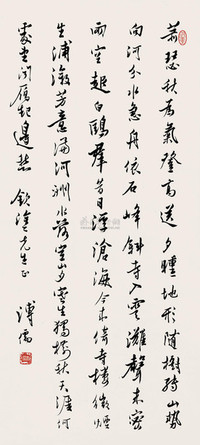 蕭瑟秋為氣登高送夕曛地形隨樹轉山勢
向河分水急舟依石峰斜寺入雲灘聲來密
雨空起白鷗群昔日浮滄海今來倚寺樓微煙
生浦漵芳意滿河洲水落空山夕寒生獨樹秋天涯何
處聞雁起邊愁 先生正 溥儒